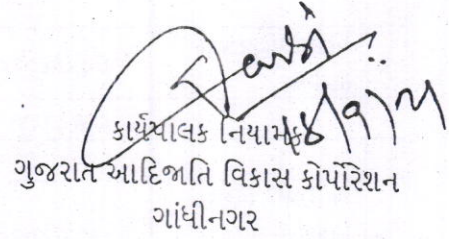 કાર્યપાલક નિયામક
ગુજરાત આદિજાતિ વિકાસ કોર્પોરેશન
ગાંધીનગર